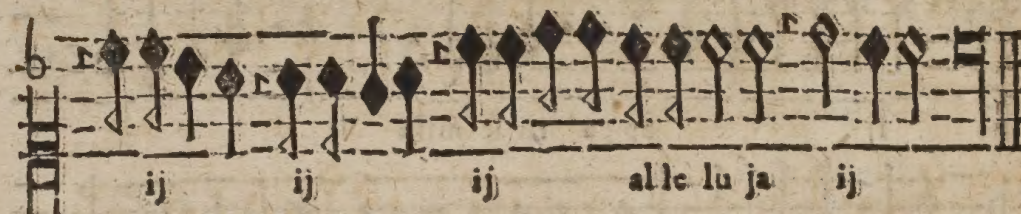 ij ij ij al le lu ja ij